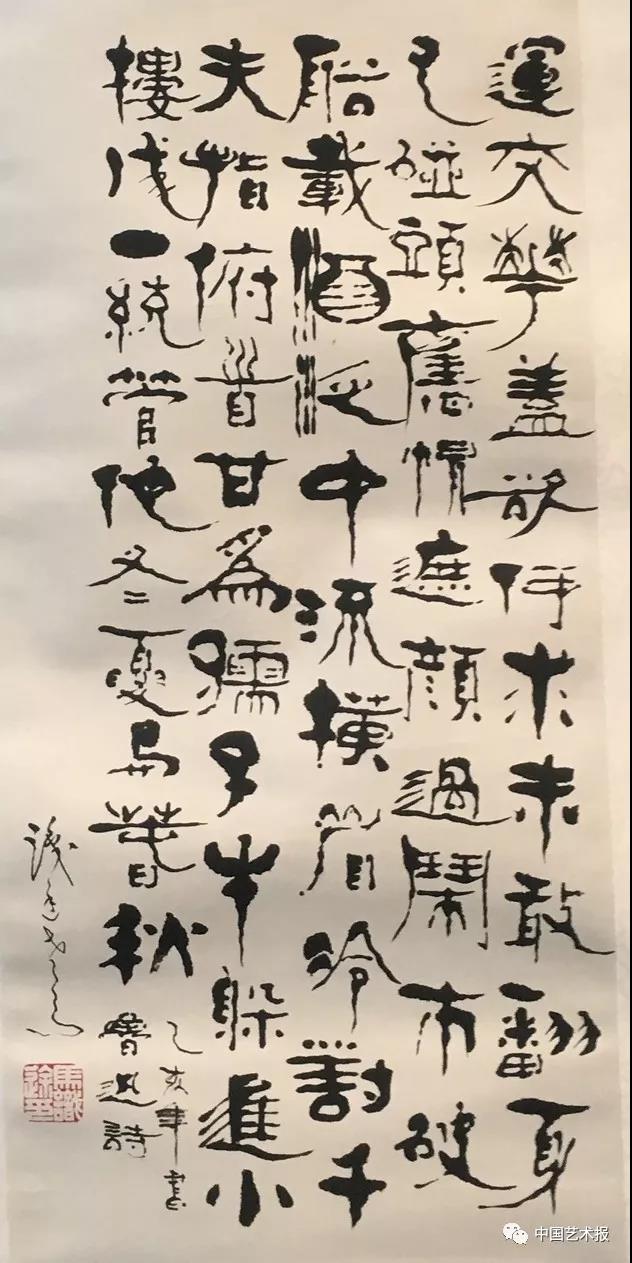 運交華蓋欲何求未敢翻身
已碰頭舊帽遮顏過鬧市破
船載酒泛中流橫眉冷對千
夫指俯首甘爲孺子牛躲進小
樓成一統管他冬夏與春秋
乙亥年書
魯迅詩
識途
馬識途印
中国艺术报